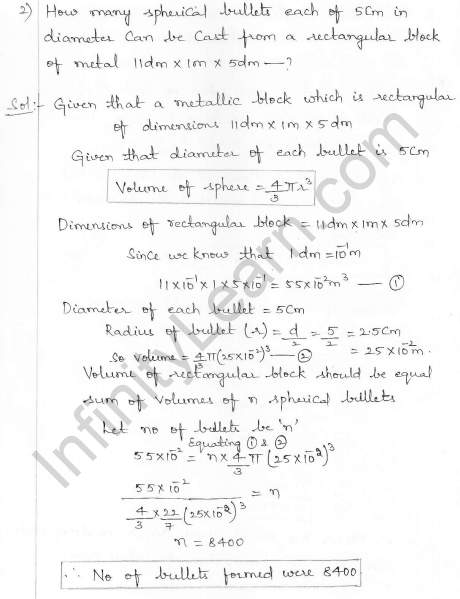 2) How many spherical bullets each of 5cm in
diameter can be cast from a rectangular block
of metal 11dm × 1m × 5dm —?
Sol:- Given that a metallic block which is rectangular
of dimensions 11dm × 1m × 5dm
Given that diameter of each bullet is 5cm
Volume of sphere = 4/3 πr³
Dimensions of rectangular block = 11dm × 1m × 5dm
Since we know that 1dm = 10⁻¹m
11×10⁻¹ × 1 × 5×10⁻¹ = 55×10⁻²m³ — ①
Diameter of each bullet = 5cm
Radius of bullet (r) = d/2 = 5/2 = 2.5cm
= 25×10⁻²m.
So volume = 4/3 π(25×10⁻²)³ — ②
Volume of rectangular block should be equal
sum of volumes of n spherical bullets
Let no of bullets be 'n'
Equating ① & ②
55×10⁻² = n × 4/3 π (25×10⁻²)³
55×10⁻² / (4/3 × 22/7 (25×10⁻²)³) = n
n = 8400
∴ No of bullets formed were 8400
InfinityLearn.com